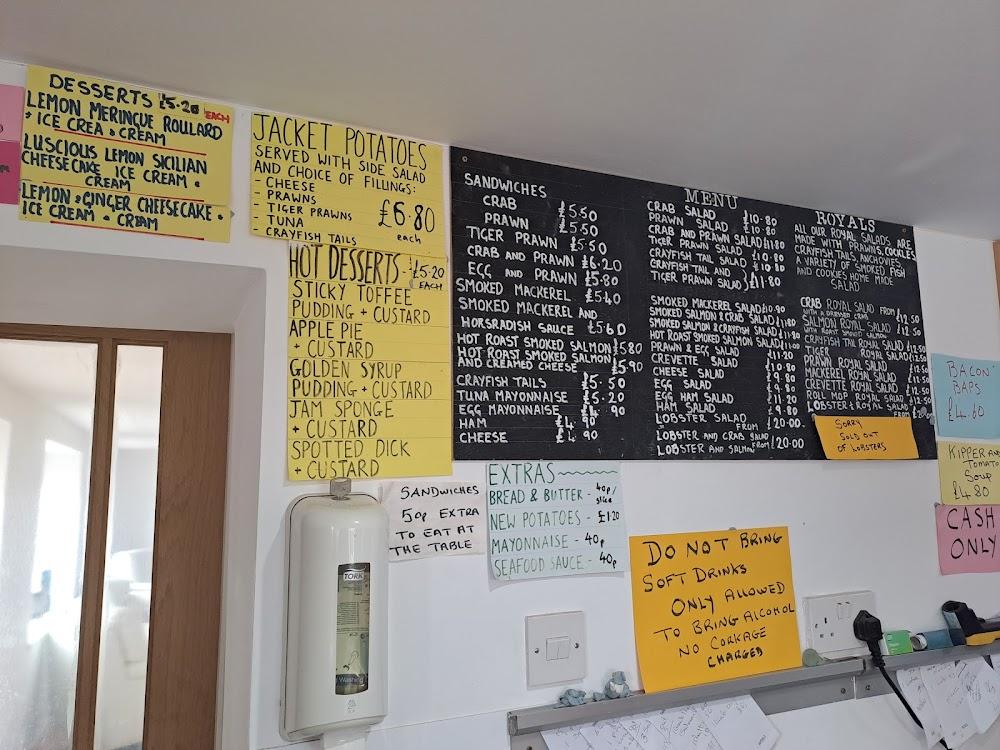 DESSERTS £5.20 EACH
LEMON MERINGUE ROULARD
+ ICE CREA & CREAM
LUSCIOUS LEMON SICILIAN
CHEESECAKE ICE CREAM &
CREAM
LEMON & GINGER CHEESECAKE &
ICE CREAM & CREAM
JACKET POTATOES
SERVED WITH SIDE SALAD
AND CHOICE OF FILLINGS:
- CHEESE
- PRAWNS
- TIGER PRAWNS
- TUNA
- CRAYFISH TAILS
£6.80
each
HOT DESSERTS - £5.20
EACH
STICKY TOFFEE
PUDDING + CUSTARD
APPLE PIE
+ CUSTARD
GOLDEN SYRUP
PUDDING + CUSTARD
JAM SPONGE
+ CUSTARD
SPOTTED DICK
+ CUSTARD
SANDWICHES
CRAB £5.50
PRAWN £5.50
TIGER PRAWN £5.50
CRAB AND PRAWN £6.20
EGG AND PRAWN £5.80
SMOKED MACKEREL £5.40
SMOKED MACKEREL AND
HORSRADISH SAUCE £5.60
HOT ROAST SMOKED SALMON £5.80
HOT ROAST SMOKED SALMON
AND CREAMED CHEESE £5.90
CRAYFISH TAILS £5.50
TUNA MAYONNAISE £5.20
EGG MAYONNAISE £4.90
HAM £4.90
CHEESE £4.90
MENU
CRAB SALAD £10.80
PRAWN SALAD £10.80
CRAB AND PRAWN SALAD £11.80
TIGER PRAWN SALAD £10.80
CRAYFISH TAIL SALAD £10.80
CRAYFISH TAIL AND
TIGER PRAWN SALAD } £11.80
SMOKED MACKEREL SALAD £10.80
SMOKED SALMON & CRAB SALAD £11.80
SMOKED SALMON & CRAYFISH SALAD £11.80
HOT ROAST SMOKED SALMON SALAD £11.80
PRAWN & EGG SALAD £11.20
CREVETTE SALAD £10.80
CHEESE SALAD £9.80
EGG SALAD £9.80
EGG HAM SALAD £11.20
HAM SALAD £9.80
LOBSTER SALAD FROM £20.00
LOBSTER AND CRAB SALAD
LOBSTER AND SALMON FROM £20.00
ROYALS
ALL OUR ROYAL SALADS ARE
MADE WITH PRAWNS, COCKLES,
CRAYFISH TAILS, ANCHOVIES
A VARIETY OF SMOKED FISH
AND COOKIES HOME MADE
SALAD
CRAB ROYAL SALAD FROM £12.50
WITH A DRESSED CRAB
SALMON ROYAL SALAD £12.50
WITH ROAST SMOKED SALMON
CRAYFISH TAIL ROYAL SALAD £12.50
TIGER ROYAL SALAD £12.50
PRAWN ROYAL SALAD
MACKEREL ROYAL SALAD £12.50
CREVETTE ROYAL SALAD £12.50
ROLL MOP ROYAL SALAD £12.50
LOBSTER ROYAL SALAD
FROM
SORRY
SOLD OUT
OF LOBSTERS
BACON
BAPS
£4.60
KIPPER AND
TOMATO
SOUP
£4.80
CASH
ONLY
SANDWICHES
50p EXTRA
TO EAT AT
THE TABLE
EXTRAS
BREAD & BUTTER - 40p/
slice
NEW POTATOES - £1.20
MAYONNAISE - 40p
SEAFOOD SAUCE - 40p
DO NOT BRING
SOFT DRINKS
ONLY ALLOWED
TO BRING ALCOHOL
NO CORKAGE
CHARGED
TORK
Washing